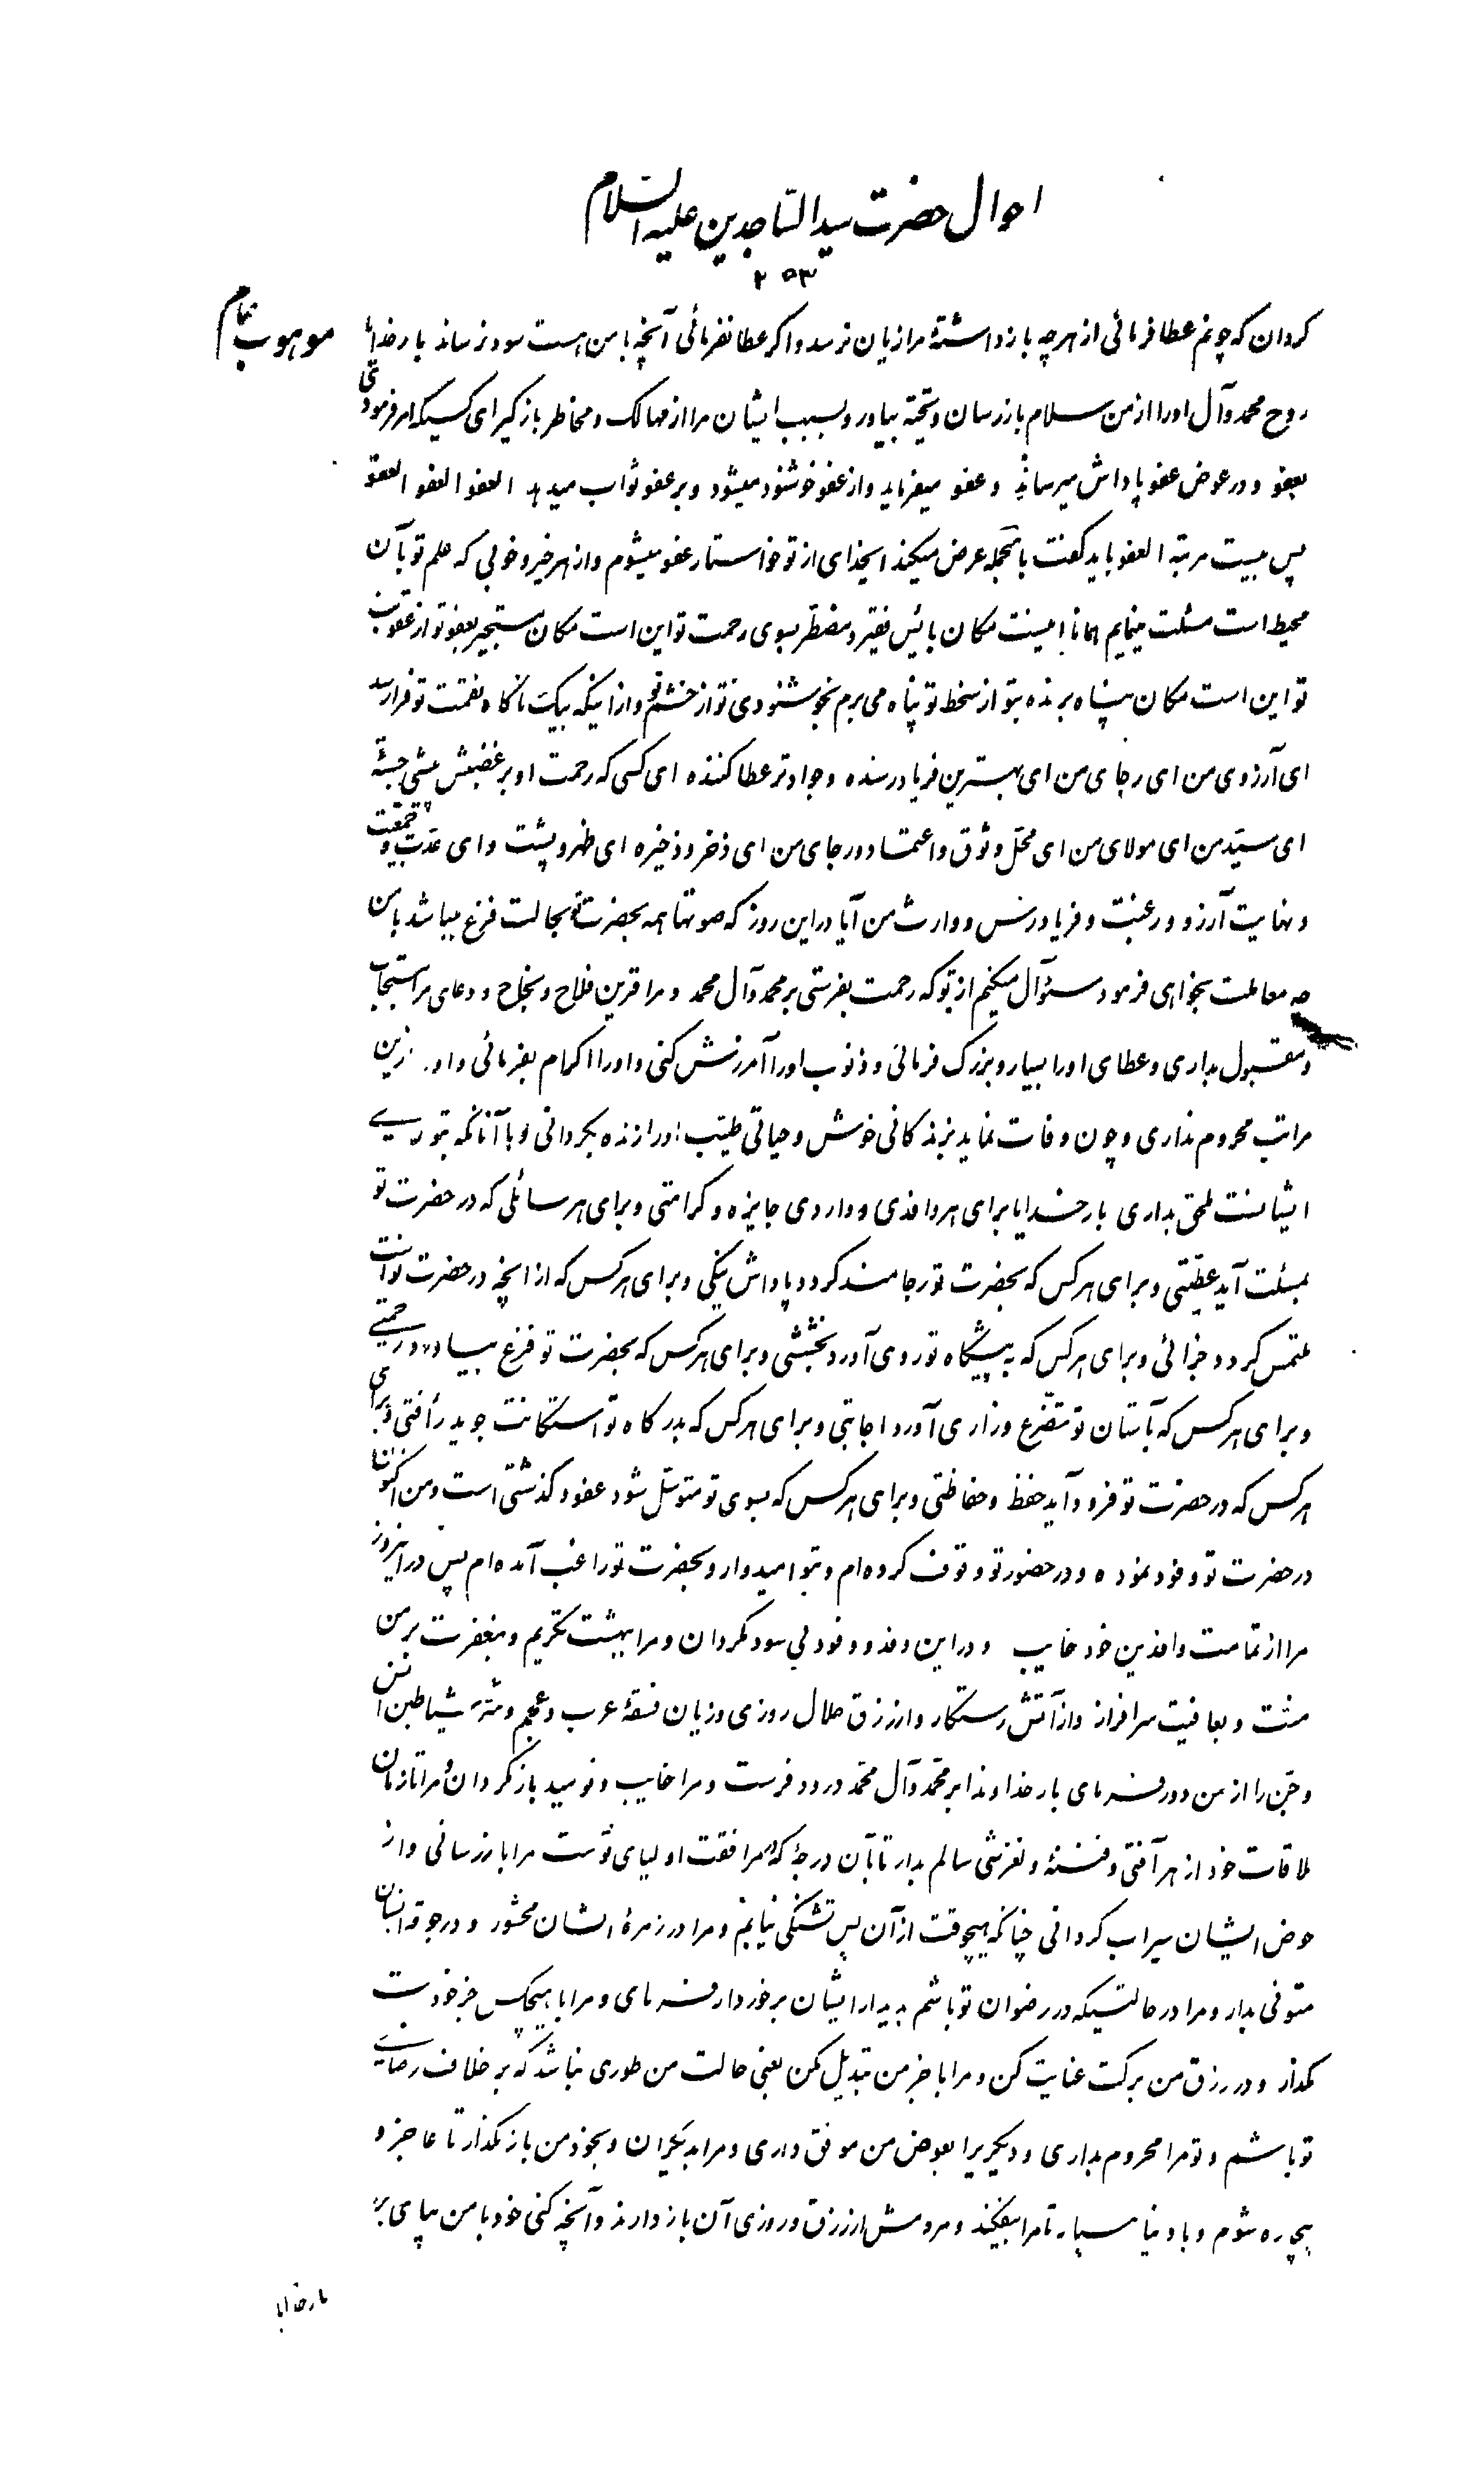 احوال حضرت سید السّاجدین علیه السّلام
۲۵۳
موهوب تمام
کردان که چونم عطا فرمائی از هر چه باز داشتهٔ مرا زیان نرسد و اکر عطا نفرمائی آنچه با من هست سود نرساند بار خدایا
روح محمد و آل او را از من سلام باز رسان و تحیّت بیاور و بسبب ایشان مرا از مهالک و مخاطر باز کیر ای کسیکه امر فرمودی
بعفو و در عوض عفو پاداش میرساند و عفو میفرماید و از عفو خوشنود میشود و بر عفو ثواب میدهد العفو العفو العفو
پس بیست مرتبه العفو باید کفت بالجمله عرض میکند ایخدای از تو خواستار عفو میشوم و از هر خیر و خوبی که علم تو بآن
محیط است مسئلت مینمایم همانا اینست مکان بائیس فقیر و مضطر بسوی رحمت تو این است مکان مستجیر بعفو تو از عقوبت
تو این است مکان پناه برنده بتو از سخط تو پناه می برم بخوشنودی تو از خشم تو و از اینکه بیک ناکاه نقمت تو فرا رسد
ای آرزوی من ای رجای من ای بهترین فریاد رسنده و جوادتر عطا کننده ای کسی که رحمت او بر غضبش پیشی جسته
ای سیّد من ای مولای من ای محلّ وثوق و اعتماد و رجای من ای ذخر و ذخیره ای ظهر و پشت و ای عدّت
و نهایت آرزو و رغبت و فریادرس و وارث من آیا در این روز که صوتها همه بحضرت تو بحالت فزع میباشد با من
چه معاملت بخواهی فرمود سئوال میکنم از تو که رحمت بفرستی بر محمد و آل محمد و مرا قرین فلاح و نجاح و دعای مرا مستجاب
و مقبول بداری و عطای او را بسیار و بزرک فرمائی و ذنوب او را آمرزش کنی و او را اکرام بفرمائی و او را ازین
مراتب محروم نداری و چون وفات نماید بزندکانی خوش و حیاتی طیّب او را زنده بکردانی و با آنانکه بتو
ایشانست ملحق بداری بار خدایا برای هر وافدی و واردی جایزه و کرامتی و برای هر سائلی که در حضرت تو
بمسئلت آید عطیّتی و برای هر کس که بحضرت تو رجامند کردد پاداش نیکی و برای هر کس که از آنچه در حضرت تو است
ملتمس کردد جزائی و برای هر کس که به پیشکاه تو روی آورد بخششی و برای هر کس که بحضرت تو فزع بیاورد رحمتی
و برای هر کس که بآستان تو تضّرع و زاری آورد اجابتی و برای هر کس که بدرکاه تو استکانت جوید رأفتی و برای
هر کس که در حضرت تو فرود آید حفظ و حفاظتی و برای هر کس که بسوی تو متوسّل شود عفو و کذشتی است و من اکنون
در حضرت تو وفود نموده و در حضور تو وقوف کرده‌ام و بتو امیدوار و بحضرت تو راغب آمده‌ام پس در امروز
مرا از تمامت وافدین خود خایب و در این وفد و وفود بی سود مکردان و مرا ببهشت تکریم و بمغفرت بر من
منّت و بعافیت سرافراز و از آتش رستکار و از رزق حلال روزی و زیان فسقهٔ عرب و عجم و شرّ شیاطین انس
و جن را از من دور فرمای بار خداوندا بر محمّد و آل محمّد درود فرست و مرا خایب و نومید باز مکردان و مرا تا زمان
ملاقات خود از هر آفتی و فتنهٔ و لغزشی سالم بدار تا بآن درجهٔ که مرافقت اولیای تو است مرا باز رسانی و از
حوض ایشان سیراب کردانی چنانکه هیچوقت از آن پس تشنکی نیابم و مرا در زمرهٔ ایشان محشور و در جوقهٔ ایشان
متوفی بدار و مرا در حالتیکه در رضوان تو باشم بدیدار ایشان برخوردار فرمای و مرا با هیچکس جز خودت
مکذار و در رزق من برکت عنایت کن و مرا با جز من تبدیل مکن یعنی حالت من طوری نباشد که بر خلاف رضایت
تو باشم و تو مرا محروم بداری و دیکریرا بعوض من موفق داری و مرا بدیکران و بخود من باز مکذار تا عاجز و
بیچاره شوم و با دنیا مسپار تا مرا بیفکند و مردمش از رزق و روزی آن باز دارند و آنچه کنی خود با من بپای بر
بار خدایا